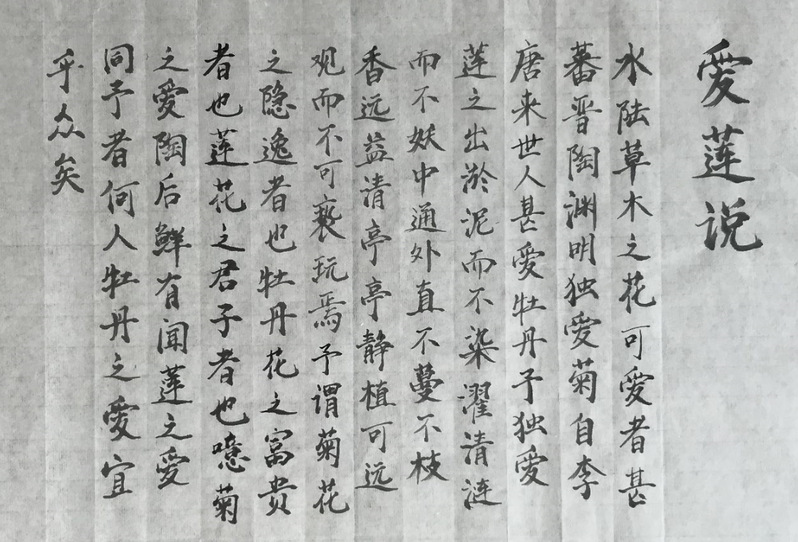 爱莲说
水陆草木之花可爱者甚
蕃晋陶渊明独爱菊自李
唐来世人甚爱牡丹予独爱
莲之出淤泥而不染濯清涟
而不妖中通外直不蔓不枝
香远益清亭亭静植可远
观而不可亵玩焉予谓菊花
之隐逸者也牡丹花之富贵
者也莲花之君子者也噫菊
之爱陶后鲜有闻莲之爱
同予者何人牡丹之爱宜
乎众矣